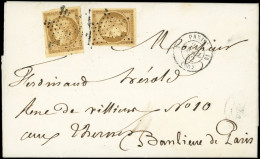 PARIS
Monsieur
Ferdinand Hérold
Rue de Villiers N° 10
aux Thernes
Banlieue de Paris